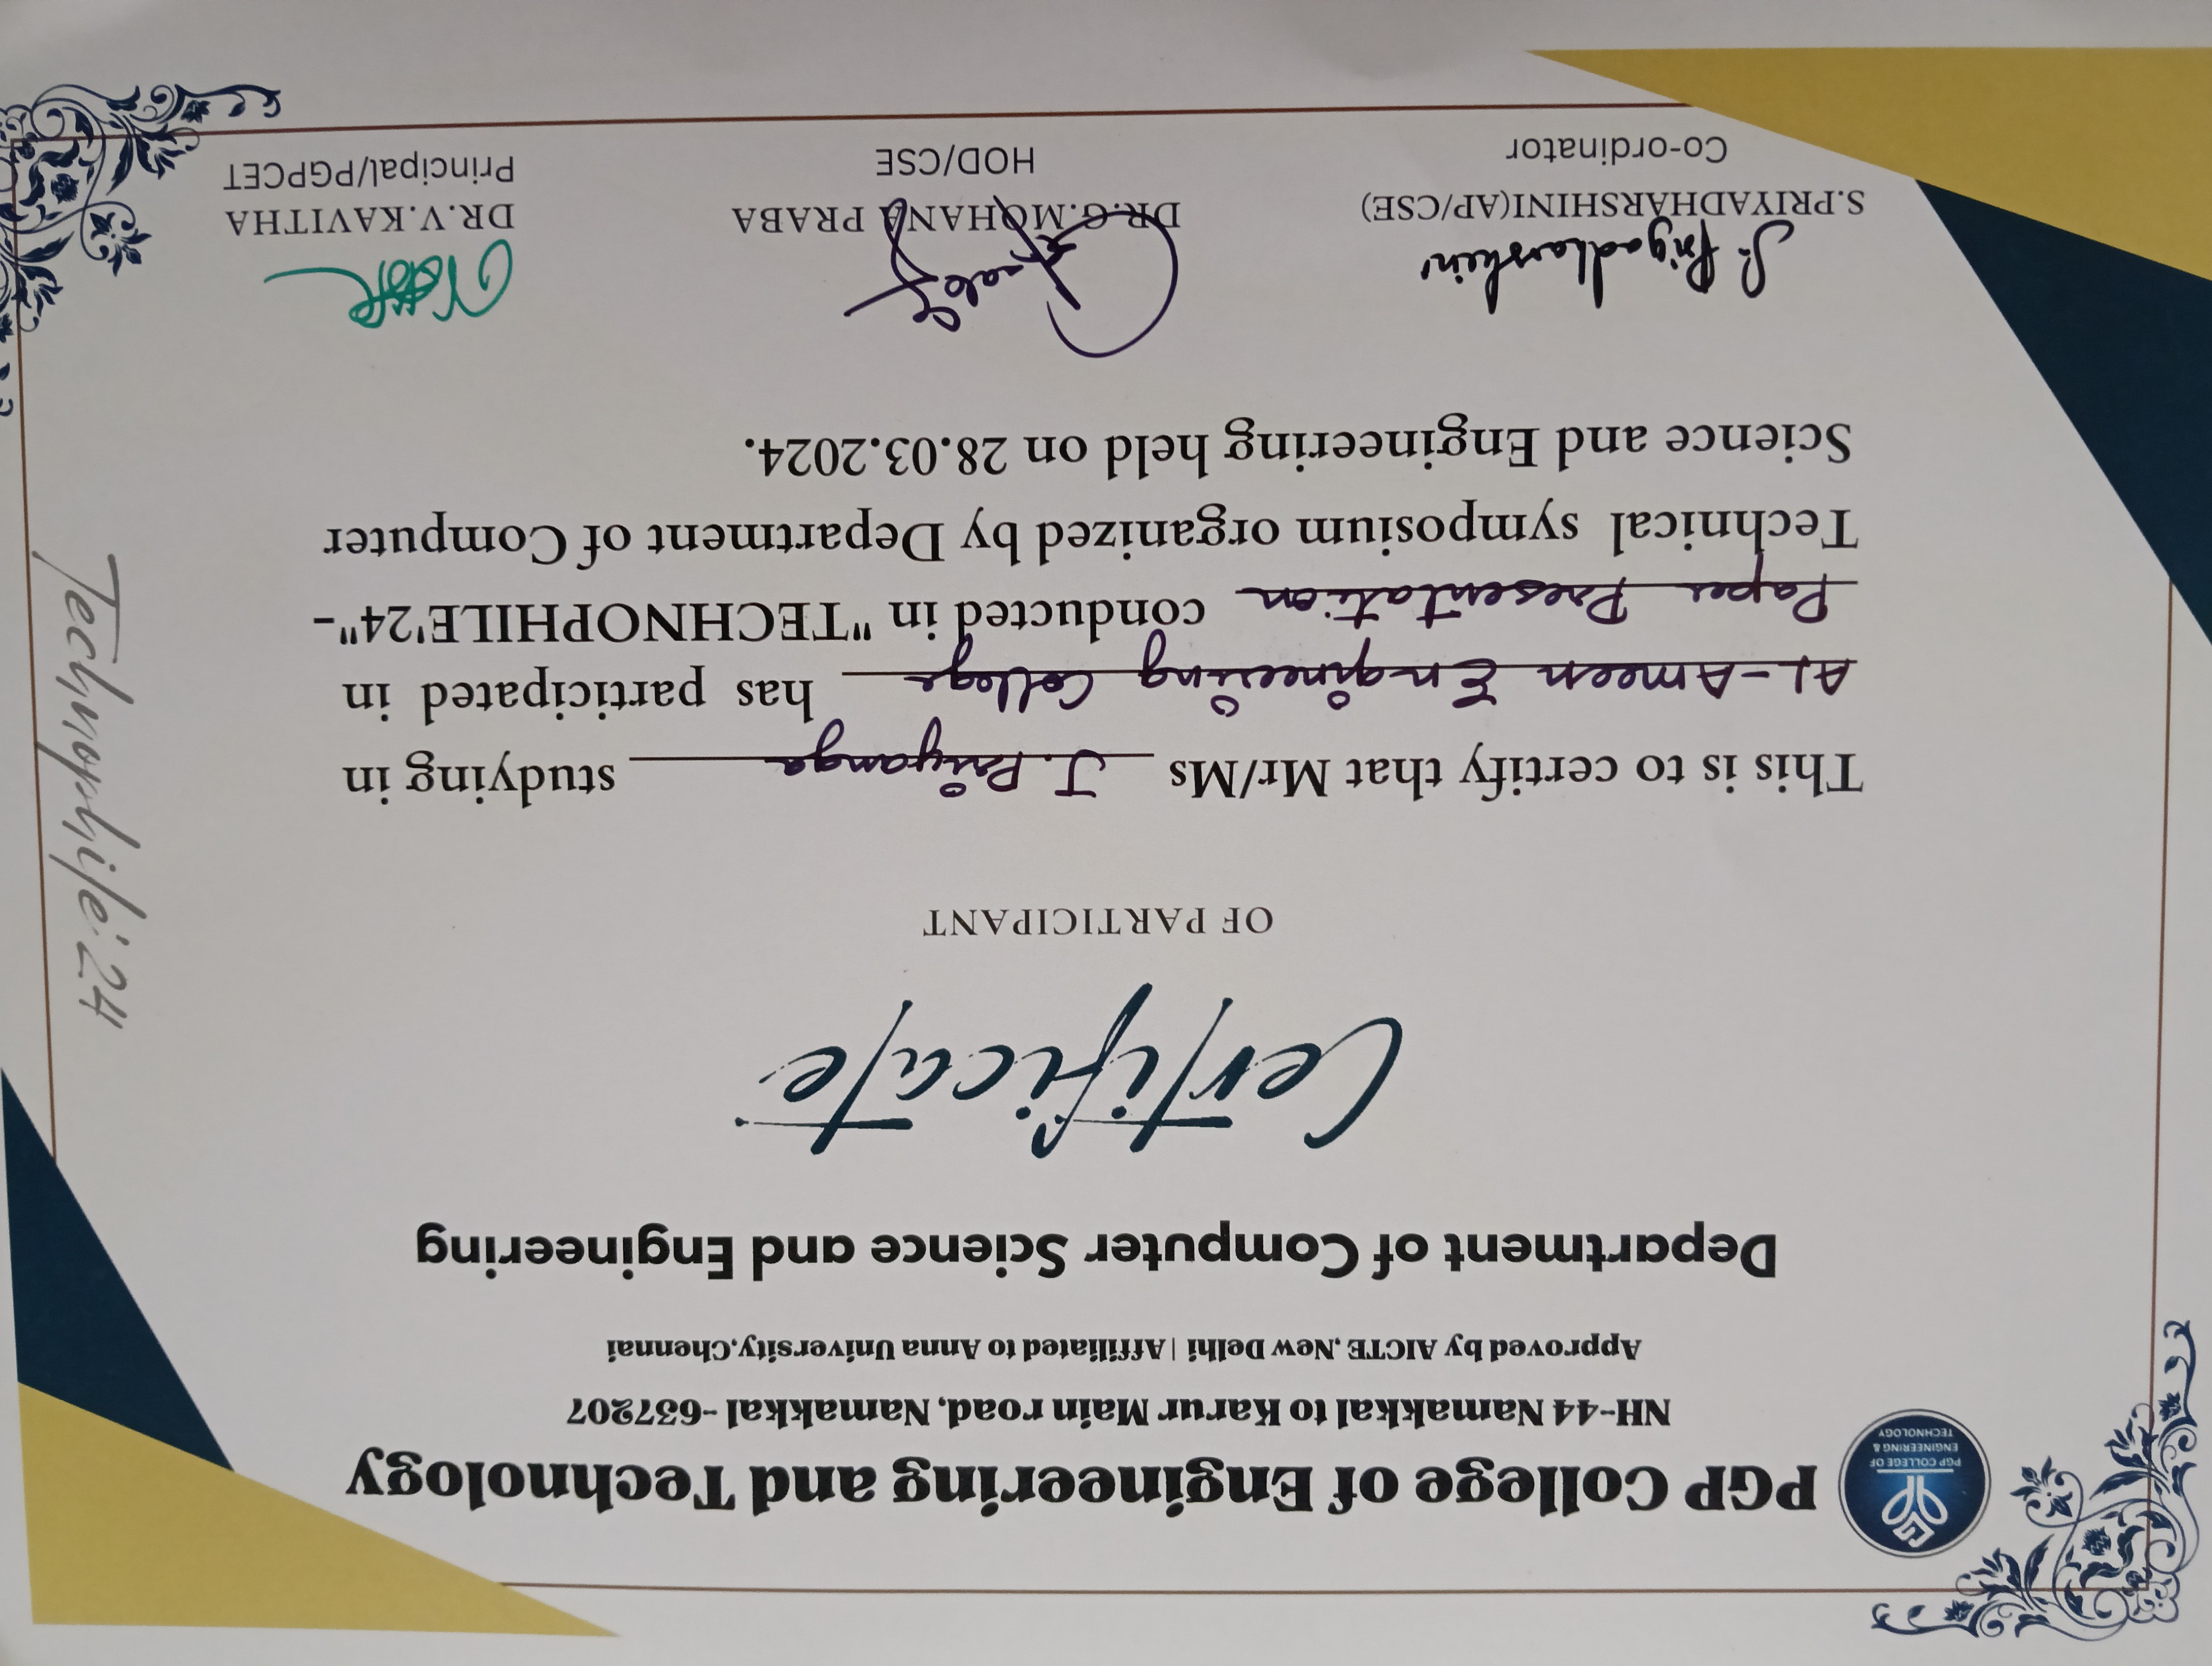 PGP COLLEGE OF
ENGINEERING &
TECHNOLOGY
PGP College of Engineering and Technology
NH-44 Namakkal to Karur Main road, Namakkal -637207
Approved by AICTE ,New Delhi | Affiliated to Anna University,Chennai
Department of Computer Science and Engineering
Certificate
OF PARTICIPANT
This is to certify that Mr/Ms J. Priyanga studying in
AL-Ameen Engineering College has participated in
Paper Presentation conducted in "TECHNOPHILE'24"-
Technical symposium organized by Department of Computer
Science and Engineering held on 28.03.2024.
Technophile'24
S. Priyadharshini
S.PRIYADHARSHINI(AP/CSE)
Co-ordinator
DR.G.MOHANA PRABA
HOD/CSE
DR.V.KAVITHA
Principal/PGPCET